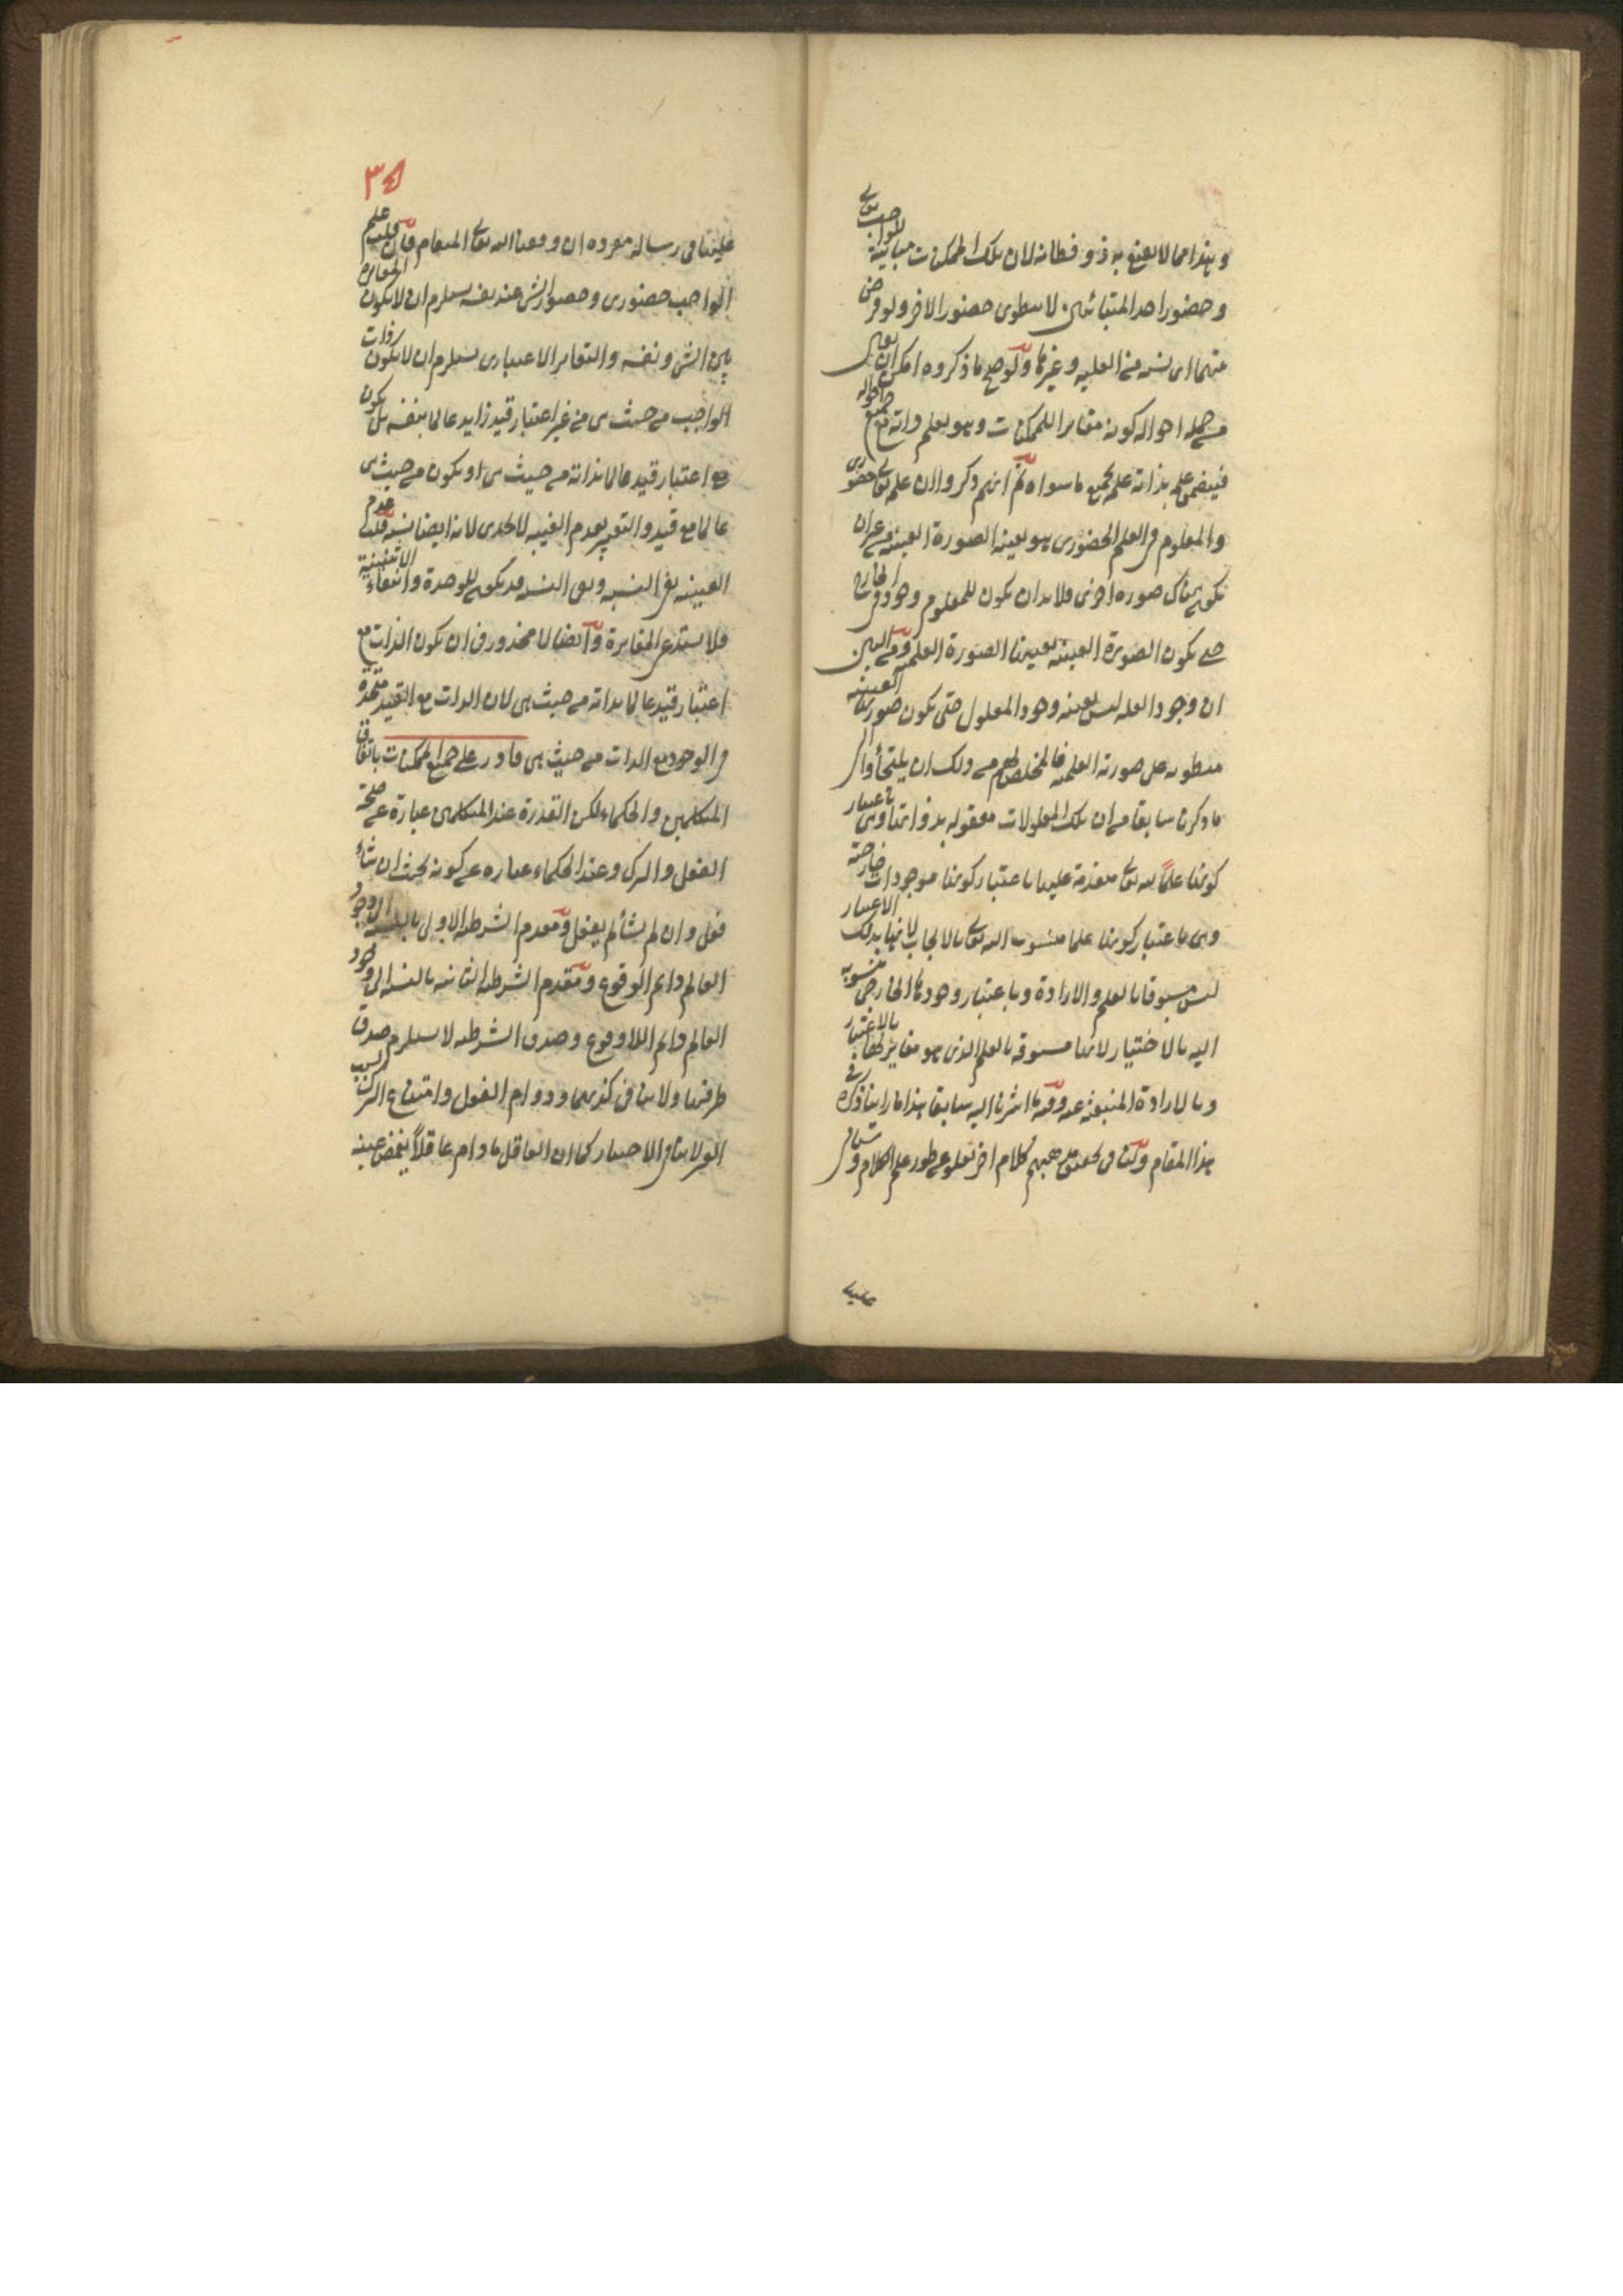 وهذا مما لا يقنع به ذو فطانة لان تلك الممكنات مباينة للواجب تعالى
وحضور احد المتباينين لا ينطوى حضور الاخر ولو فرض
بينهما اى نسبة من العلية وغيرها ولو صح ما ذكروه امكن ان يقال
من جملة احواله كونه مغايرا للممكنات وهو يعلم ذاته مع جميع احواله
فيتضمن علمه بذاته علمه بجميع ما سواه ثم انهم ذكروا ان علمه تعالى حضورى
والمعلوم فى العلم الحضورى هو بعينه الصورة العينية من غير ان
يكون هناك صورة اخرى فلا بد ان يكون للمعلوم وجود فى الخارج
حتى يكون الصورة العينية بعينها الصورة العلمية ومن البين
ان وجود العلة ليس بعينه وجود المعلول حتى يكون صورتها العينية
منطوية على صورته العلمية فالمخلص لهم من ذلك ان يلتجأوا الى
ما ذكرنا سابقا من ان تلك المعلولات معقولة بذواتها وهى باعتبار
كونها علما لله تعالى متقدمة عليها باعتبار كونها موجودات خارجية
وهى باعتبار كونها علما منسوب اليه تعالى بالايجاب لانها بذلك الاعتبار
ليس مسبوقا بالعلم والارادة وباعتبار وجودها الخارجى منسوبة
اليه بالاختيار لانها مسبوقة بالعلم الذى هو مغاير لها بالاعتبار
وبالارادة المنبعثة عنه وقد اشرنا اليه سابقا هذا ما راينا ذكره فى
هذا المقام ولنا فى تحقيق مذهبهم كلام اخر نعلو عن طور علم الكلام و
عليها
٣٥
علينا فى رسالة مفردة ان وفقنا الله تعالى المنعام فان قلت علم
الواجب حضورى وحضور الشى عند نفسه يستلزم ان لا يكون المغايرة
بين الشى ونفسه والتغاير الاعتبارى يستلزم ان لا يكون ذات
الواجب من حيث هى من غير اعتبار قيد زايد عالما بنفسه بل يكون
مع اعتبار قيد عالما بذاته من حيث هى او يكون من حيث هى
عالما مع قيد والتعبير بعدم الغيبة لا يجدى لانه ايضا نسبة قلت عدم
الغيبة نفى النسبة ونفى النسبة قد يكون للوحدة وانتفاء الاثنينية
فلا يستدعى المغايرة وايضا لا محذور فى ان يكون الذات مع
اعتبار قيد عالما بذاته من حيث هى لان الذات مع القيد متحدة
فى الوجود مع الذات من حيث هى قادر على جميع الممكنات باتفاق
المتكلمين والحكماء لكن القدرة عند المتكلمين عبارة عن صحة
الفعل والترك وعند الحكماء عبارة عن كونه بحيث ان شاء
فعل وان لم يشأ لم يفعل ومقدم الشرطية الاولى بالنسبة الى وجود
العالم دائم الوقوع ومقدم الشرطية الثانية بالنسبة الى وجود
العالم دائم اللاوقوع وصدق الشرطية لا يستلزم صدق
طرفيها ولا ينافى كذبهما ودوام الفعل وامتناع الترك بسبب
الغير لا ينافى الاختيار كما ان العاقل ما دام عاقلا يغمض عينه